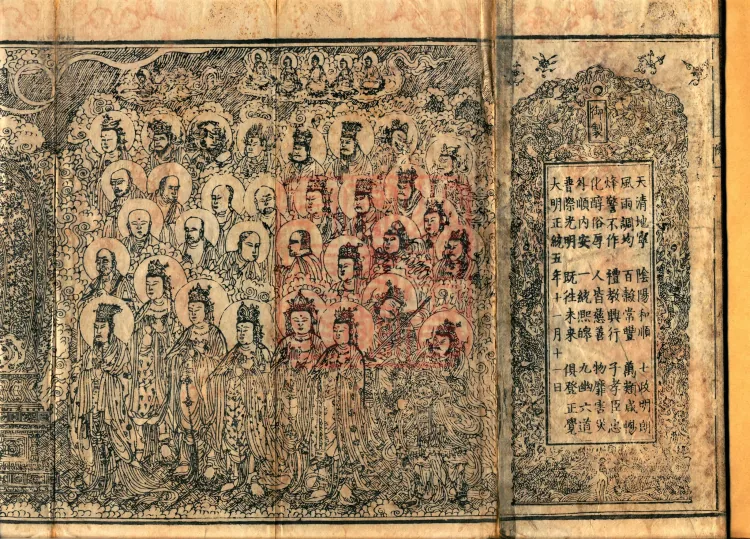 御製
天清地寧 陰陽和順 七政明朗
風雨調均 百穀常豐 萬彙咸暢
烽警不作 禮教興行 子孝臣忠
化醇俗厚 人皆慈善 物靡害災
外順內安 一統熙皞 九幽六道
普際光明 既往未來 俱登正覺
大明正統五年十一月十一日